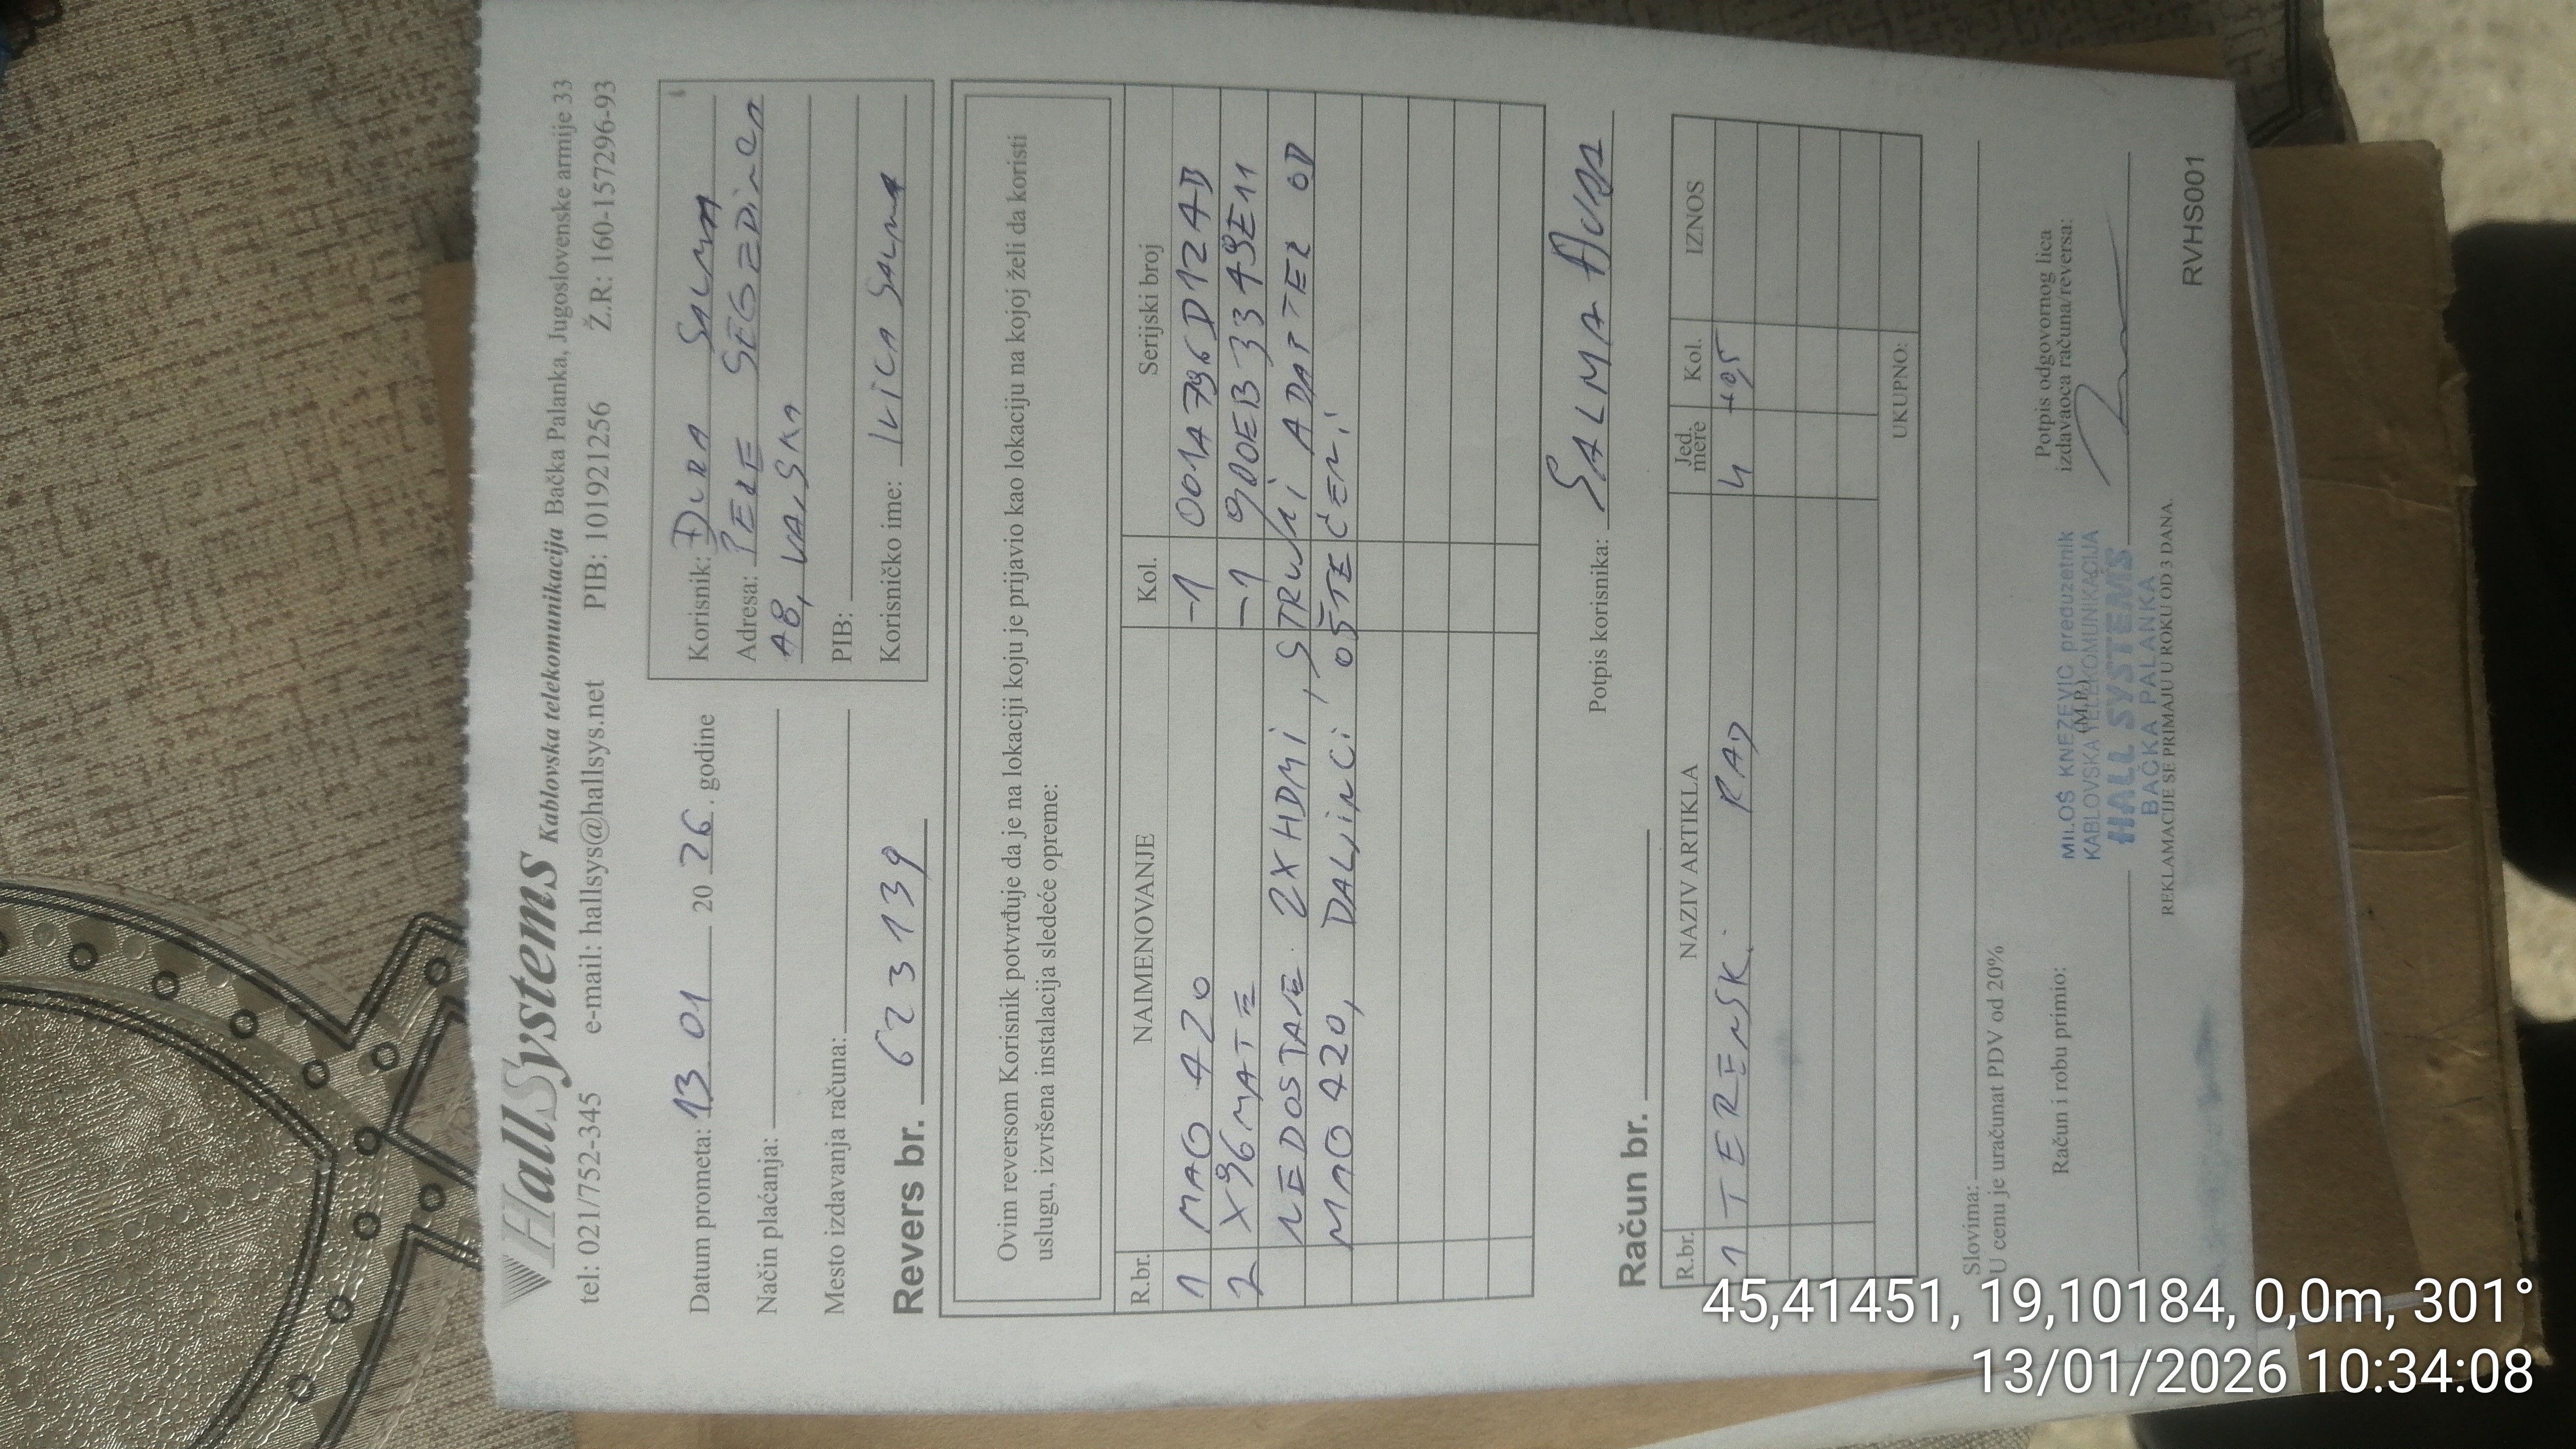 HallSystems Kablovska telekomunikacija Bačka Palanka, Jugoslovenske armije 33
tel: 021/752-345 e-mail: hallsys@hallsys.net PIB: 101921256 Ž.R.: 160-157296-93
Datum prometa: 13 01 20 26. godine
Način plaćanja:
Mesto izdavanja računa:
Revers br. 623139
Korisnik: ĐURA SALMA
Adresa: PERE SEGEDINCA
A8, VAJSKA
PIB:
Korisničko ime: IVICA SALMA
Ovim reversom Korisnik potvrđuje da je na lokaciji koju je prijavio kao lokaciju na kojoj želi da koristi
uslugu, izvršena instalacija sledeće opreme:
R.br. NAIMENOVANJE Kol. Serijski broj
1 MAG 420 -1 001A796D124B
2 X96MATE -1 900EB3349E11
NEDOSTAJE 2XHDMI, STRUJNI ADAPTER OD
MAG 420, DALJINCI OŠTEĆENI
Potpis korisnika: SALMA
Račun br.
R.br. NAZIV ARTIKLA Jed. mere Kol. IZNOS
1 TERENSKI RAD h +0,5
UKUPNO:
Slovima:
U cenu je uračunat PDV od 20%
Račun i robu primio:
(M.P.)
Potpis odgovornog lica
izdavaoca računa/reversa:
MILOŠ KNEŽEVIĆ preduzetnik
KABLOVSKA TELEKOMUNIKACIJA
HALL SYSTEMS
BAČKA PALANKA
REKLAMACIJE SE PRIMAJU U ROKU OD 3 DANA.
RVHS001
45,41451, 19,10184, 0,0m, 301°
13/01/2026 10:34:08